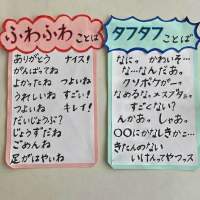 ふわふわ ことば
ありがとう ナイス!
がんばってね
よかったね つよいね
うれしいね すごい!
つよいね キレイ!
だいじょうぶ?
じょうずだね
ごめんね
足がはやいね
タフタフ ことば
なに。かわいそ…
な…なんだあっ
クソボケがー
なめるな。メスブタぁっ
すごくない?
んかあ。しゃあっ
〇〇にかなしきか…
きたんのない
いけんってやつっス